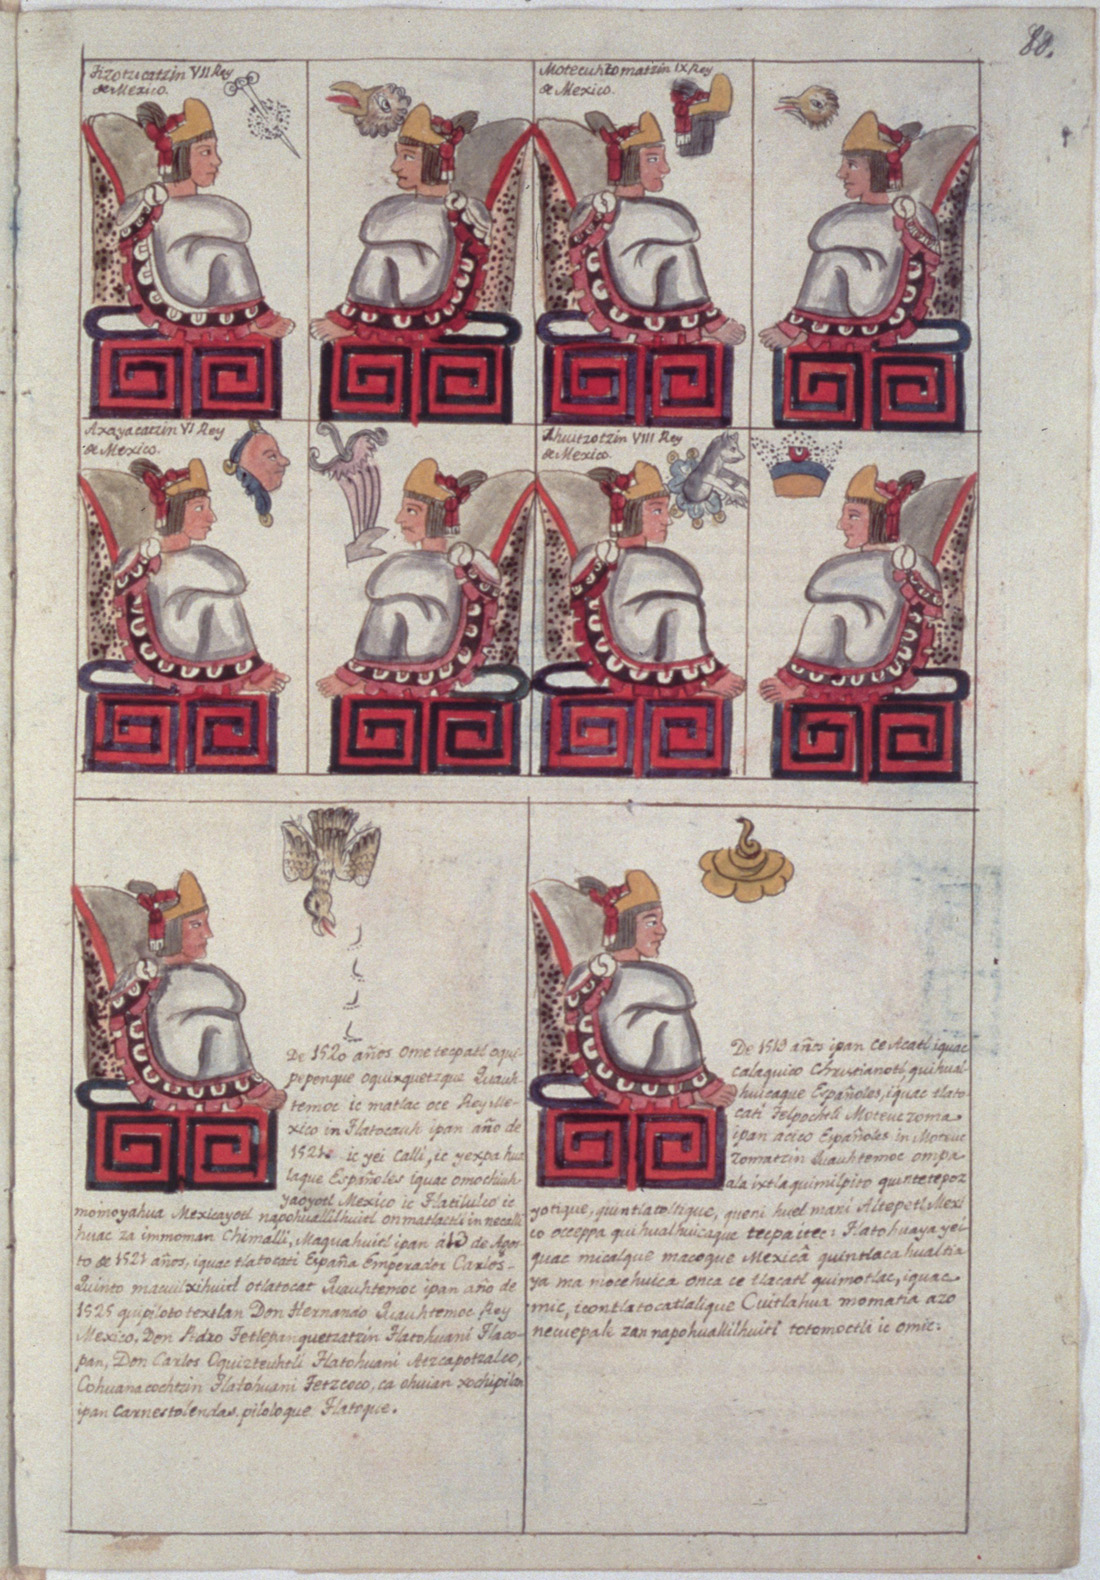 80.
Tizotzicatzin VII Rey
de Mexico.
Motecuhzomatzin IX Rey
de Mexico.
Axayacatzin VI Rey
de Mexico.
Ahuitzotzin VIII Rey
de Mexico.
De 1520 años ome tecpatl oqui-
pepenque oquixquetzque Quauh-
temoc ic matlac oce Rey Me-
xico in Tlatocauh ipan año de
1521 ic yei calli, ic yexpa hua
laque Españoles iquac omochiuh
yaoyotl Mexico ic Tlatilulco ic
momoyahua Mexicayotl napohuallilhuitl onmatlactli in necalli
huac za immoman Chimalli, Maquahuitl ipan á 13 de Agos-
to de 1521 años, iquac tlatocati España Emperador Carlos-
Quinto macuilxihuitl otlatocat Quauhtemoc ipan año de
1525 quipiloto texlan Don Hernando Quauhtemoc Rey
Mexico, Don Pidro Tetlepanquetzatzin Tlatohuani Tlaco-
pan, Don Carlos Oquizteuhtli Tlatohuani Atzcapotzalco,
Cohuanacochtzin Tlatohuani Tetzcoco, ca ohuian xochipilco
ipan carnestolendas piloloque Tlatoque.
De 1519 años ipan ce Acatl iquac
calaquico Christianotl, quihual-
huicaque Españoles, iquac tlato-
cati Telpochtli Moteuczoma
ipan acico Españoles in Moteuc
zomatzin Quauhtemoc ompa
ala ixtlaquimilpito quintetepoz
yotique, quintlacoltique, queni huel mani Altepetl Mexi
co occeppa quihualhuicaque tecpaitec: Tlatohuaya yei
quac micalque macoque Mexicâ quintlacahualtia
ya ma niocehuica onca ce tlacatl quimotlac, iquac
mic, icontlatocatlalique Cuitlahua momatia azo
necuepali zan napohuallilhuitl totomoctli ic omic: